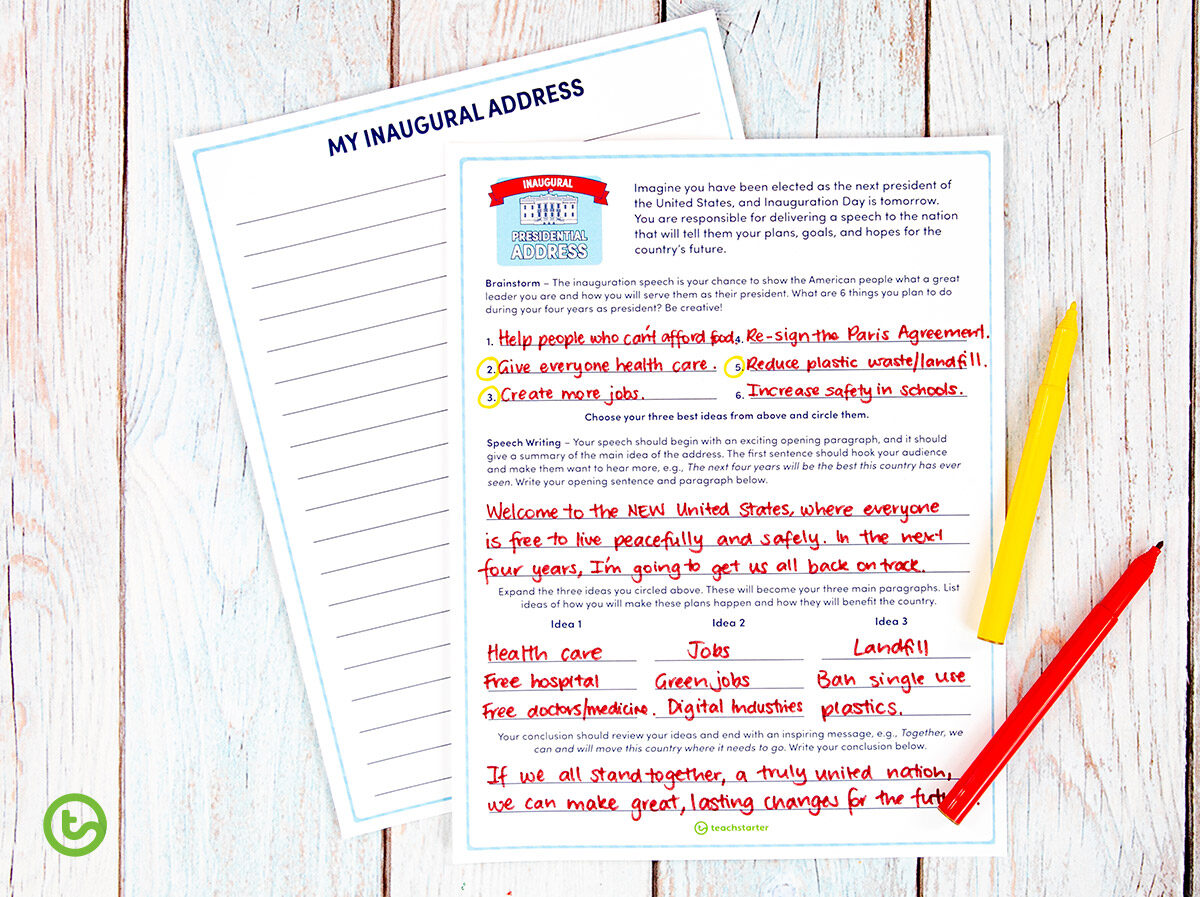 MY INAUGURAL ADDRESS
INAUGURAL
PRESIDENTIAL
ADDRESS
Imagine you have been elected as the next president of
the United States, and Inauguration Day is tomorrow.
You are responsible for delivering a speech to the nation
that will tell them your plans, goals, and hopes for the
country's future.
Brainstorm – The inauguration speech is your chance to show the American people what a great
leader you are and how you will serve them as their president. What are 6 things you plan to do
during your four years as president? Be creative!
1. Help people who can't afford food.
2. Give everyone health care.
3. Create more jobs.
4. Re-sign the Paris Agreement.
5. Reduce plastic waste/landfill.
6. Increase safety in schools.
Choose your three best ideas from above and circle them.
Speech Writing – Your speech should begin with an exciting opening paragraph, and it should
give a summary of the main idea of the address. The first sentence should hook your audience
and make them want to hear more, e.g., The next four years will be the best this country has ever
seen. Write your opening sentence and paragraph below.
Welcome to the NEW United States, where everyone
is free to live peacefully and safely. In the next
four years, I'm going to get us all back on track.
Expand the three ideas you circled above. These will become your three main paragraphs. List
ideas of how you will make these plans happen and how they will benefit the country.
Idea 1
Health care
Free hospital
Free doctors/medicine.
Idea 2
Jobs
Green jobs
Digital Industries
Idea 3
Landfill
Ban single use
plastics.
Your conclusion should review your ideas and end with an inspiring message, e.g., Together, we
can and will move this country where it needs to go. Write your conclusion below.
If we all stand together, a truly united nation,
we can make great, lasting changes for the future.
teachstarter